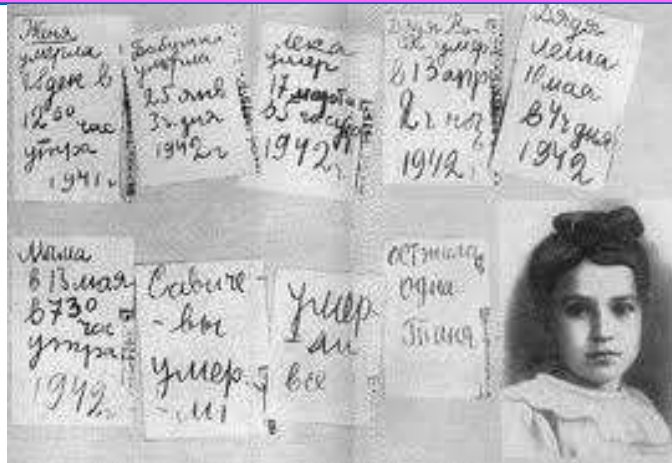 Женя
умерла
28 дек в
12 00 час
утра
1941 г
Бабушка
умерла
25 янв
3 ч дня
1942 г
Лека
умер
17 марта
в 5 час утра
1942 г
Дядя Вася
умер
в 13 апр
2 ч ночь
1942 г
Дядя
Леша
10 мая
в 4 ч дня
1942
Мама
в 13 мая
в 7 30
час
утра
1942 г
Савиче
-вы
умер
-ли
умер
ли
все
осталась
одна
Таня